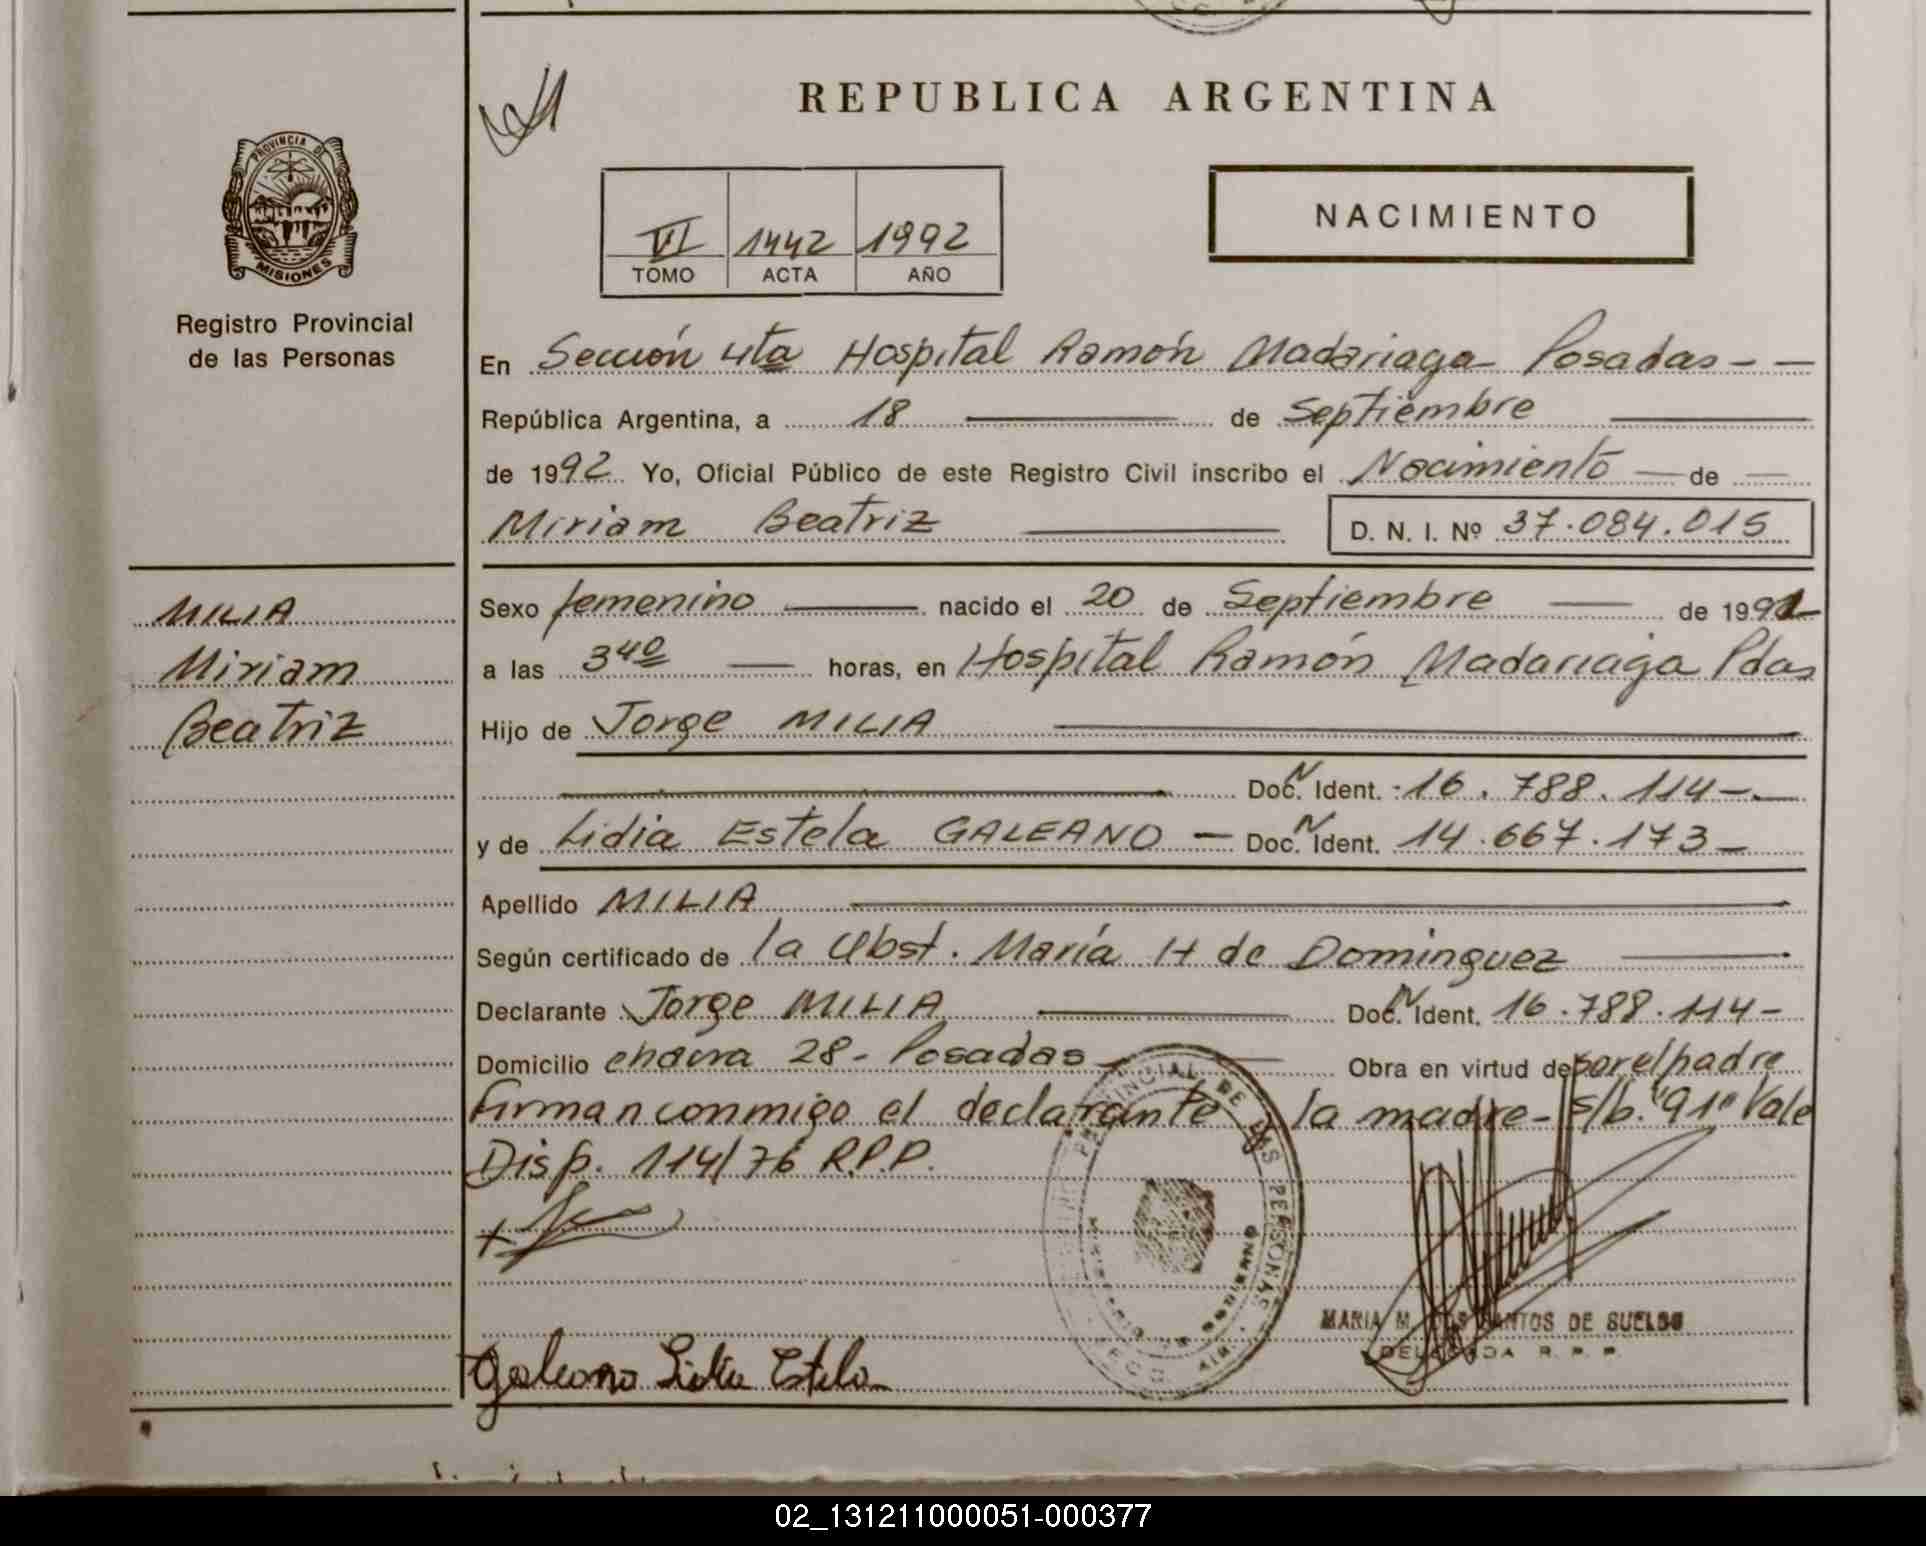 REPUBLICA ARGENTINA
PROVINCIA DE
MISIONES
Registro Provincial
de las Personas
VI 1442 1992
TOMO ACTA AÑO
NACIMIENTO
En Sección 4ta Hospital Ramón Madariaga Posadas - -
República Argentina, a 18 de Septiembre
de 1992 Yo, Oficial Público de este Registro Civil inscribo el Nacimiento de
Miriam Beatriz D. N. I. Nº 37.084.015
MILIA
Miriam
Beatriz
Sexo femenino nacido el 20 de Septiembre de 1991
a las 3 40 horas, en Hospital Ramón Madariaga Pdas
Hijo de Jorge MILIA
Doc. N Ident. 16.788.114-.
y de Lidia Estela GALEANO - Doc. N Ident. 14.667.173-
Apellido MILIA
Según certificado de la Obst. María H de Dominguez
Declarante Jorge MILIA Doc. N Ident. 16.788.114-
Domicilio chacra 28- Posadas Obra en virtud de por el padre
Firman conmigo el declarante y la madre- s/b. "91" Vale
Disp. 114/76 R.P.P.
PROVINCIAL DE LAS PERSONAS
MARIA M. DOS SANTOS DE SUELDO
DELEGADA R. P. P.
Galeano Lidia Estela
02_131211000051-000377